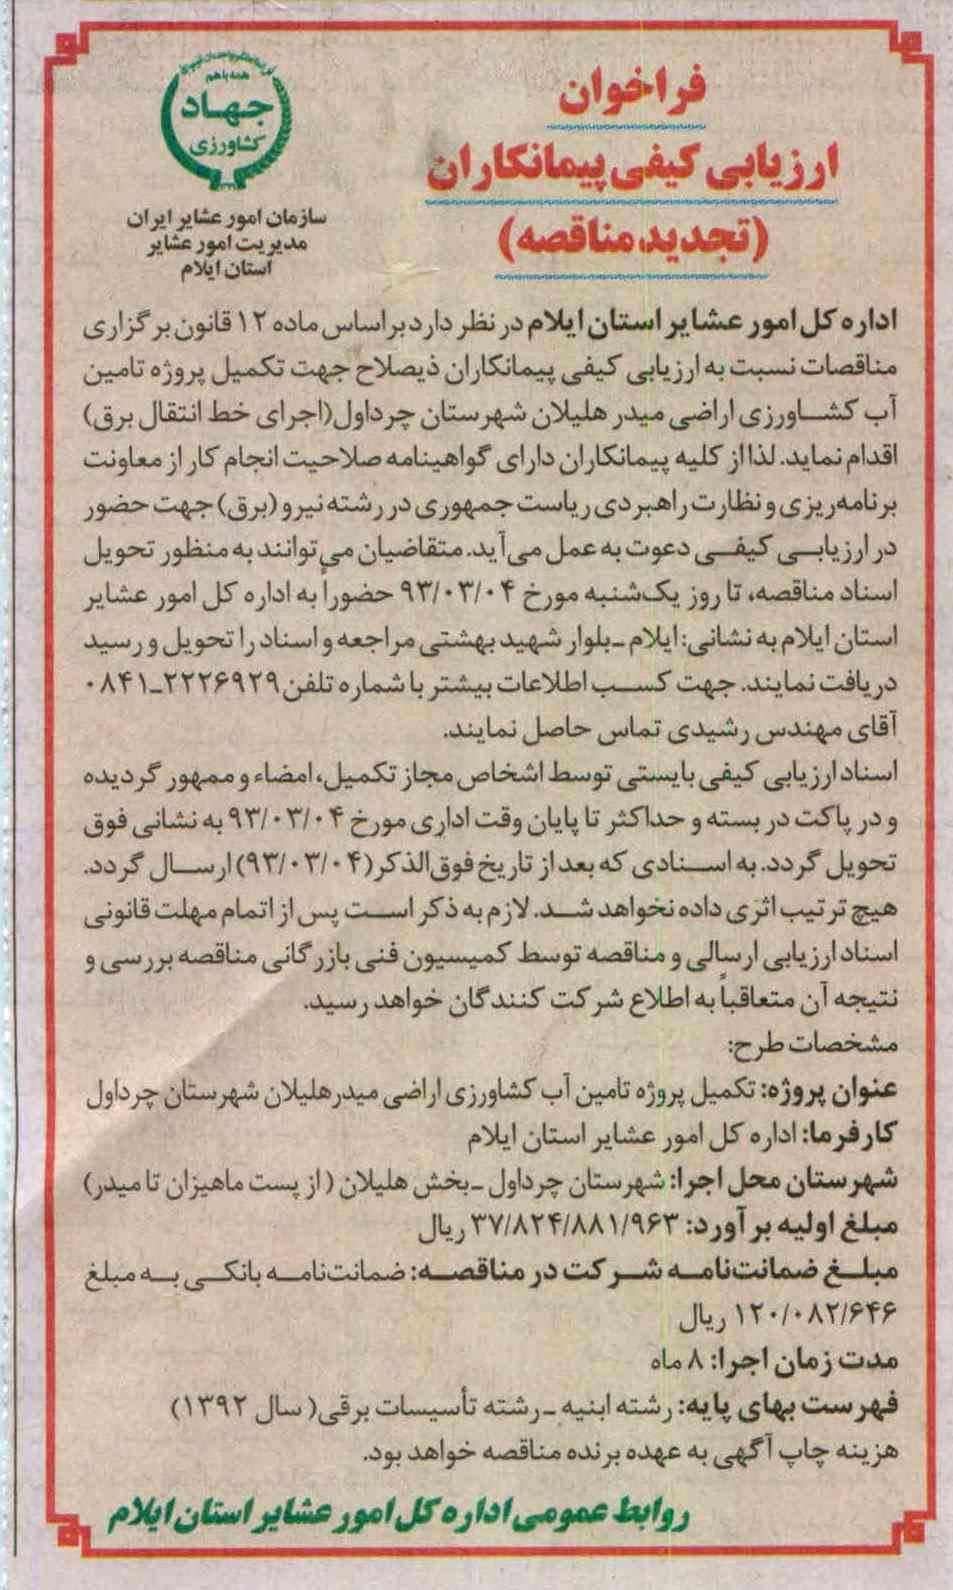 فراخوان
ارزیابی کیفی پیمانکاران
(تجدید مناقصه)
همه با هم
جهاد
کشاورزی
سازمان امور عشایر ایران
مدیریت امور عشایر
استان ایلام
اداره کل امور عشایر استان ایلام در نظر دارد براساس ماده ۱۲ قانون برگزاری
مناقصات نسبت به ارزیابی کیفی پیمانکاران ذیصلاح جهت تکمیل پروژه تامین
آب کشاورزی اراضی میدر هلیلان شهرستان چرداول(اجرای خط انتقال برق)
اقدام نماید. لذا از کلیه پیمانکاران دارای گواهینامه صلاحیت انجام کار از معاونت
برنامه‌ریزی و نظارت راهبردی ریاست جمهوری در رشته نیرو (برق) جهت حضور
در ارزیابی کیفی دعوت به عمل می‌آید. متقاضیان می‌توانند به منظور تحویل
اسناد مناقصه، تا روز یک‌شنبه مورخ ۹۳/۰۳/۰۴ حضوراً به اداره کل امور عشایر
استان ایلام به نشانی: ایلام ـ بلوار شهید بهشتی مراجعه و اسناد را تحویل و رسید
دریافت نمایند. جهت کسب اطلاعات بیشتر با شماره تلفن ۲۲۲۶۹۲۹ـ۰۸۴۱
آقای مهندس رشیدی تماس حاصل نمایند.
اسناد ارزیابی کیفی بایستی توسط اشخاص مجاز تکمیل، امضاء و ممهور گردیده
و در پاکت در بسته و حداکثر تا پایان وقت اداری مورخ ۹۳/۰۳/۰۴ به نشانی فوق
تحویل گردد. به اسنادی که بعد از تاریخ فوق‌الذکر (۹۳/۰۳/۰۴) ارسال گردد.
هیچ ترتیب اثری داده نخواهد شد. لازم به ذکر است پس از اتمام مهلت قانونی
اسناد ارزیابی ارسالی و مناقصه توسط کمیسیون فنی بازرگانی مناقصه بررسی و
نتیجه آن متعاقباً به اطلاع شرکت کنندگان خواهد رسید.
مشخصات طرح:
عنوان پروژه: تکمیل پروژه تامین آب کشاورزی اراضی میدر هلیلان شهرستان چرداول
کارفرما: اداره کل امور عشایر استان ایلام
شهرستان محل اجرا: شهرستان چرداول ـ بخش هلیلان (از پست ماهیزان تا میدر)
مبلغ اولیه برآورد: ۳۷/۸۲۴/۸۸۱/۹۶۳ ریال
مبلغ ضمانت‌نامه شرکت در مناقصه: ضمانت‌نامه بانکی به مبلغ
۱۲۰/۰۸۲/۶۴۶ ریال
مدت زمان اجرا: ۸ ماه
فهرست بهای پایه: رشته ابنیه ـ رشته تأسیسات برقی( سال ۱۳۹۲)
هزینه چاپ آگهی به عهده برنده مناقصه خواهد بود.
روابط عمومی اداره کل امور عشایر استان ایلام